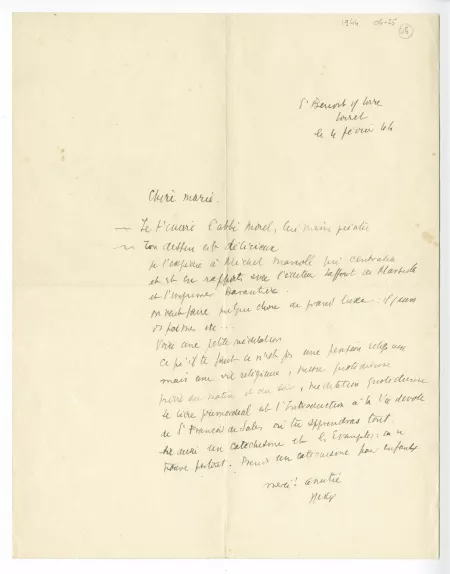 1944 04-25
St Benoit s/ Loire
Loiret
le 4 février 44
Cher marie.
Je t'envoie l'abbé Morel, lui même peintre
Ton dessin est délicieux
Je l'expédie à Michel qui centralise
et est en rapports avec l'éditeur Laffont de Marseille
et l'imprimeur Barantier.
on veut faire quelque chose de grand luxe : il y aura
os poèmes etc...
Voici une petite méditation
Ce qu'il te faut ce n'est pas une pension religieuse
mais une vie religieuse, messe quotidienne
prière du matin et du soir, méditation quotidienne
le livre primordial est l'Introduction à la Vie dévote
de St François de Sales où tu apprendras tout
lis aussi un catéchisme et les Evangiles : on en
trouve partout. Prends un catéchisme pour enfants
merci ! amitié
Max